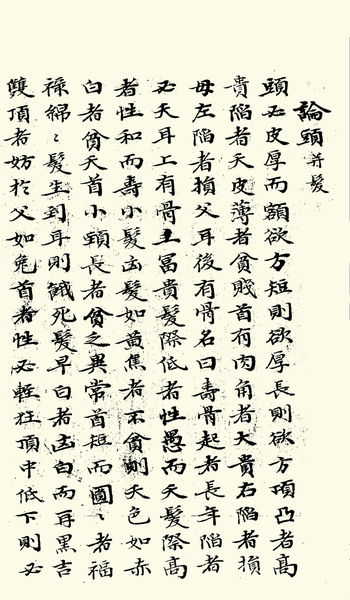 論頭并髮
頭必皮厚而額欲方短則欲厚長則欲方項凸者高
貴陷者夭皮薄者貧賤首有肉角者大貴右陷者損
母左陷者損父耳後有骨名曰壽骨起者長年陷者
必夭耳上有骨主冨貴髮際低者性愚而夭髮際高
者性和而壽小髮凶髮如黄焦者不貧則夭色如赤
白者貧夭首小頸長者貧之異常首短而圓〻者福
祿綿〻髮生到耳則餓死髮早白者凶白而再黒吉
雙頂者妨於父如兔首者性必輕狂頂中低下則必